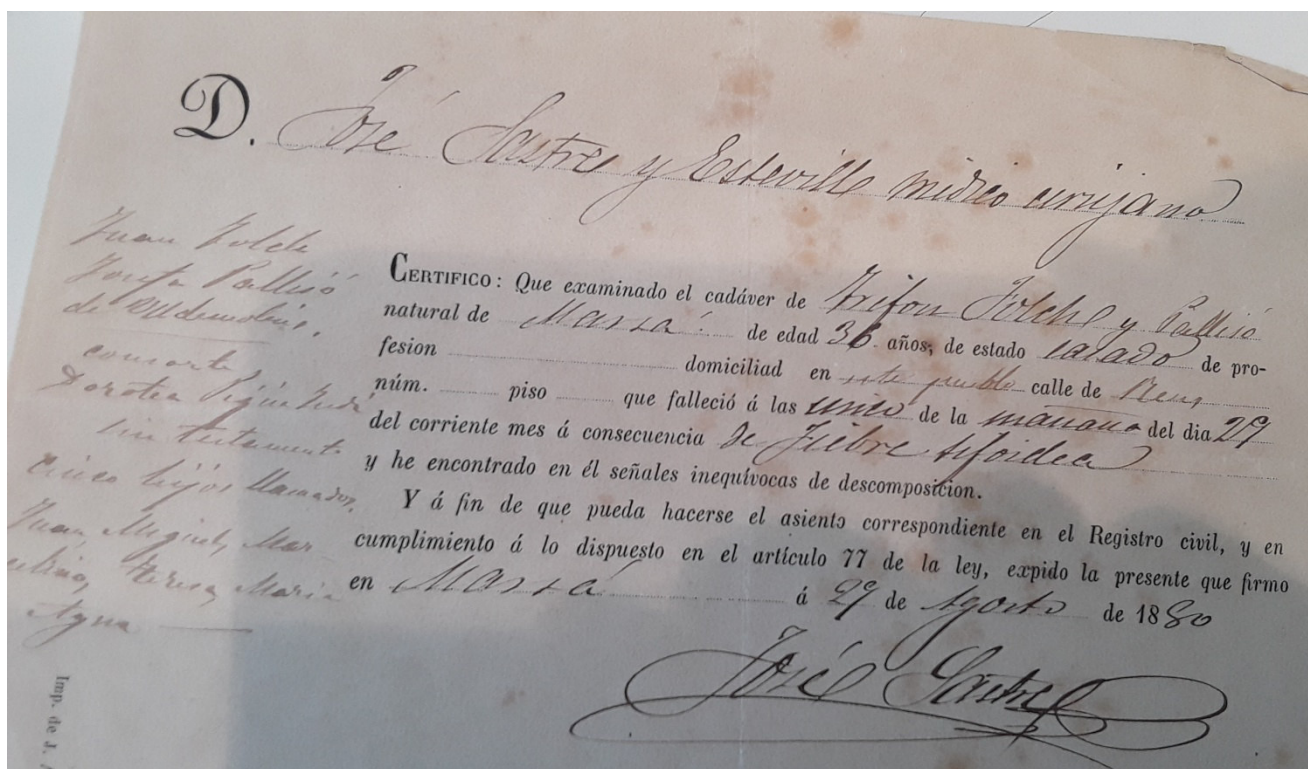 D. José Sastre y Estevill médico cirujano
Juan Folch
Josefa Pallisó
de Ulldemolins,
consorte
Dorotea
sin testamento
cinco hijos llamados,
Juan, Miguel, Mar-
celino, Teresa, Maria
Agna
CERTIFICO: Que examinado el cadáver de Trifon Folch y Pallisó
natural de Marsá de edad 36 años, de estado casado de pro-
fesion domiciliad en este pueblo calle de Reus
núm. piso que falleció á las cinco de la mañana del dia 29
del corriente mes á consecuencia de Fiebre tifoidea
y he encontrado en él señales inequívocas de descomposicion.
Y á fin de que pueda hacerse el asiento correspondiente en el Registro civil, y en
cumplimiento á lo dispuesto en el artículo 77 de la ley, expido la presente que firmo
en Marsá á 29 de Agosto de 1880
José Sastre
Imp. de J.